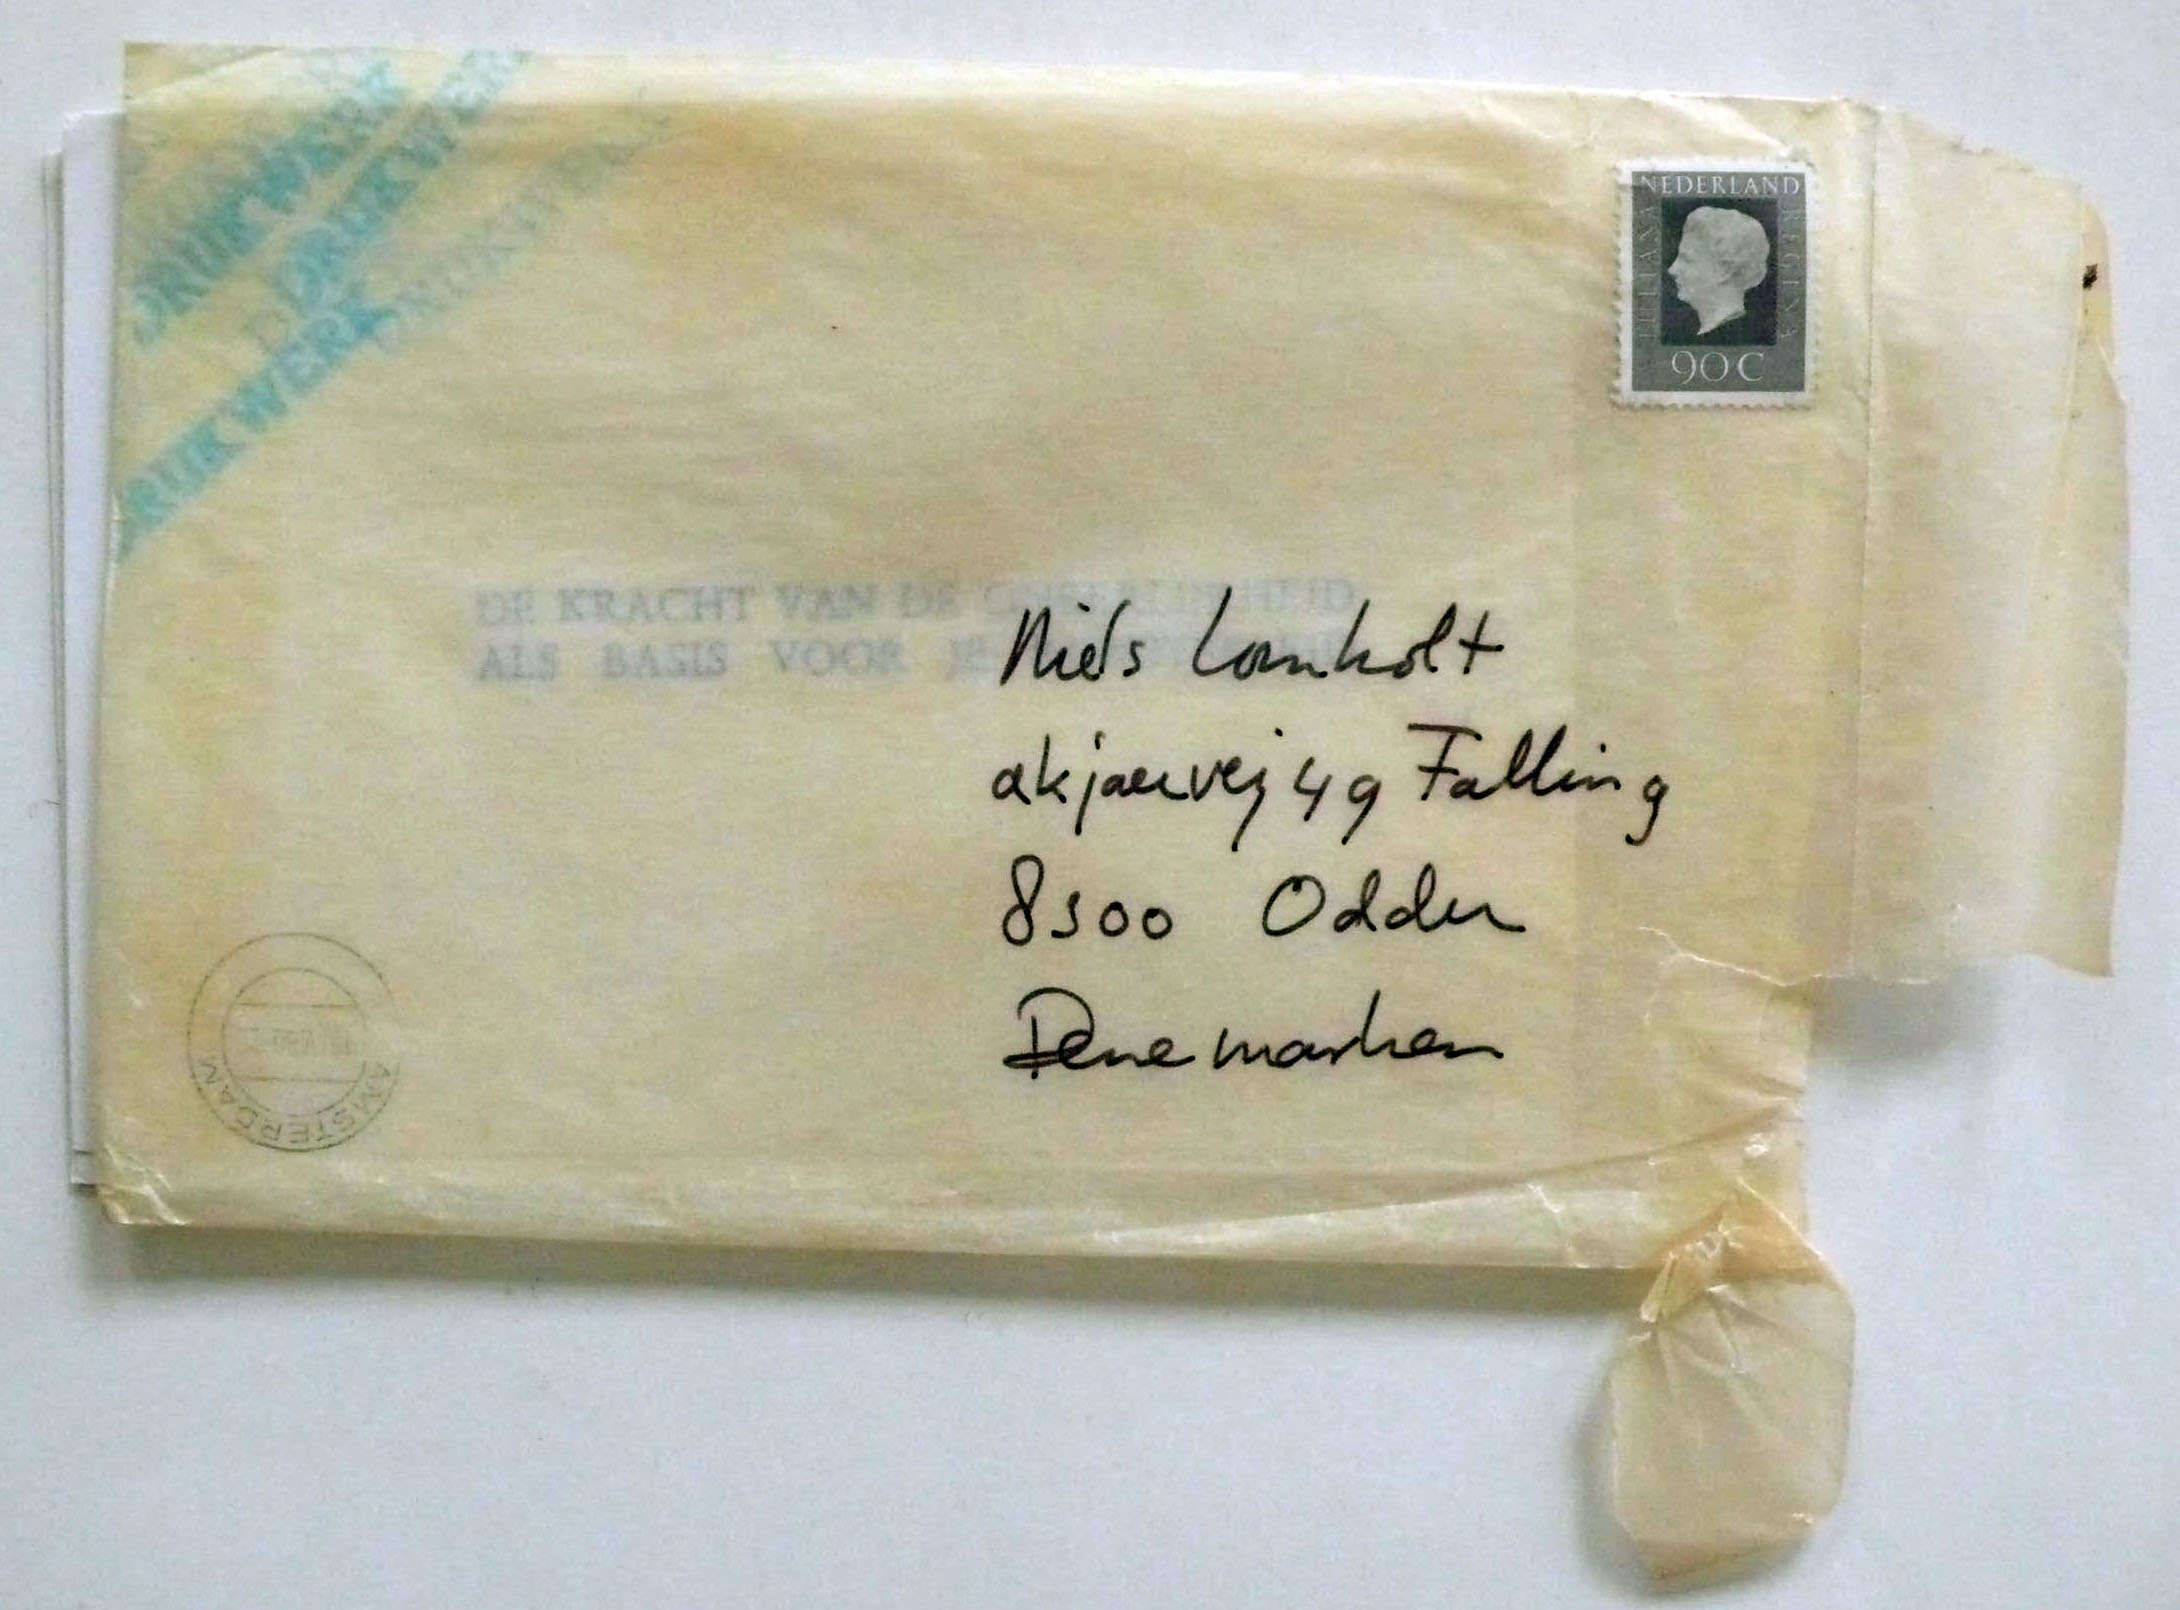 DRUKWERK
DRUKWERK
DRUKWERK
DRUKWERK
NEDERLAND
JULIANA REGINA
90 C
DE KRACHT VAN DE
ALS BASIS VOOR JE
Niels Lomholt
akjaervej 49 Falling
8300 Odder
Denemarken
AMSTERDAM